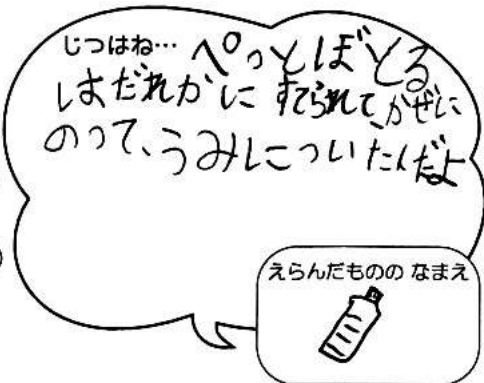 じつはね… ぺっとぼとる
はだれかに すてられて、かぜに
のって、うみについたんだよ
えらんだものの なまえ